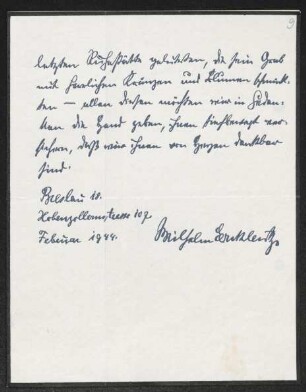 letzten Ruhestätte geleiteten, die sein Grab
mit herrlichen Kränzen und Blumen schmück-
ten — allen diesen möchten wir in Gedan-
ken die Hand geben, ihnen tiefbewegt ver-
sichern, daß wir ihnen von Herzen dankbar
sind.
Breslau 18.
Hohenzollernstrasse 107
Februar 1944.
Wilhelm